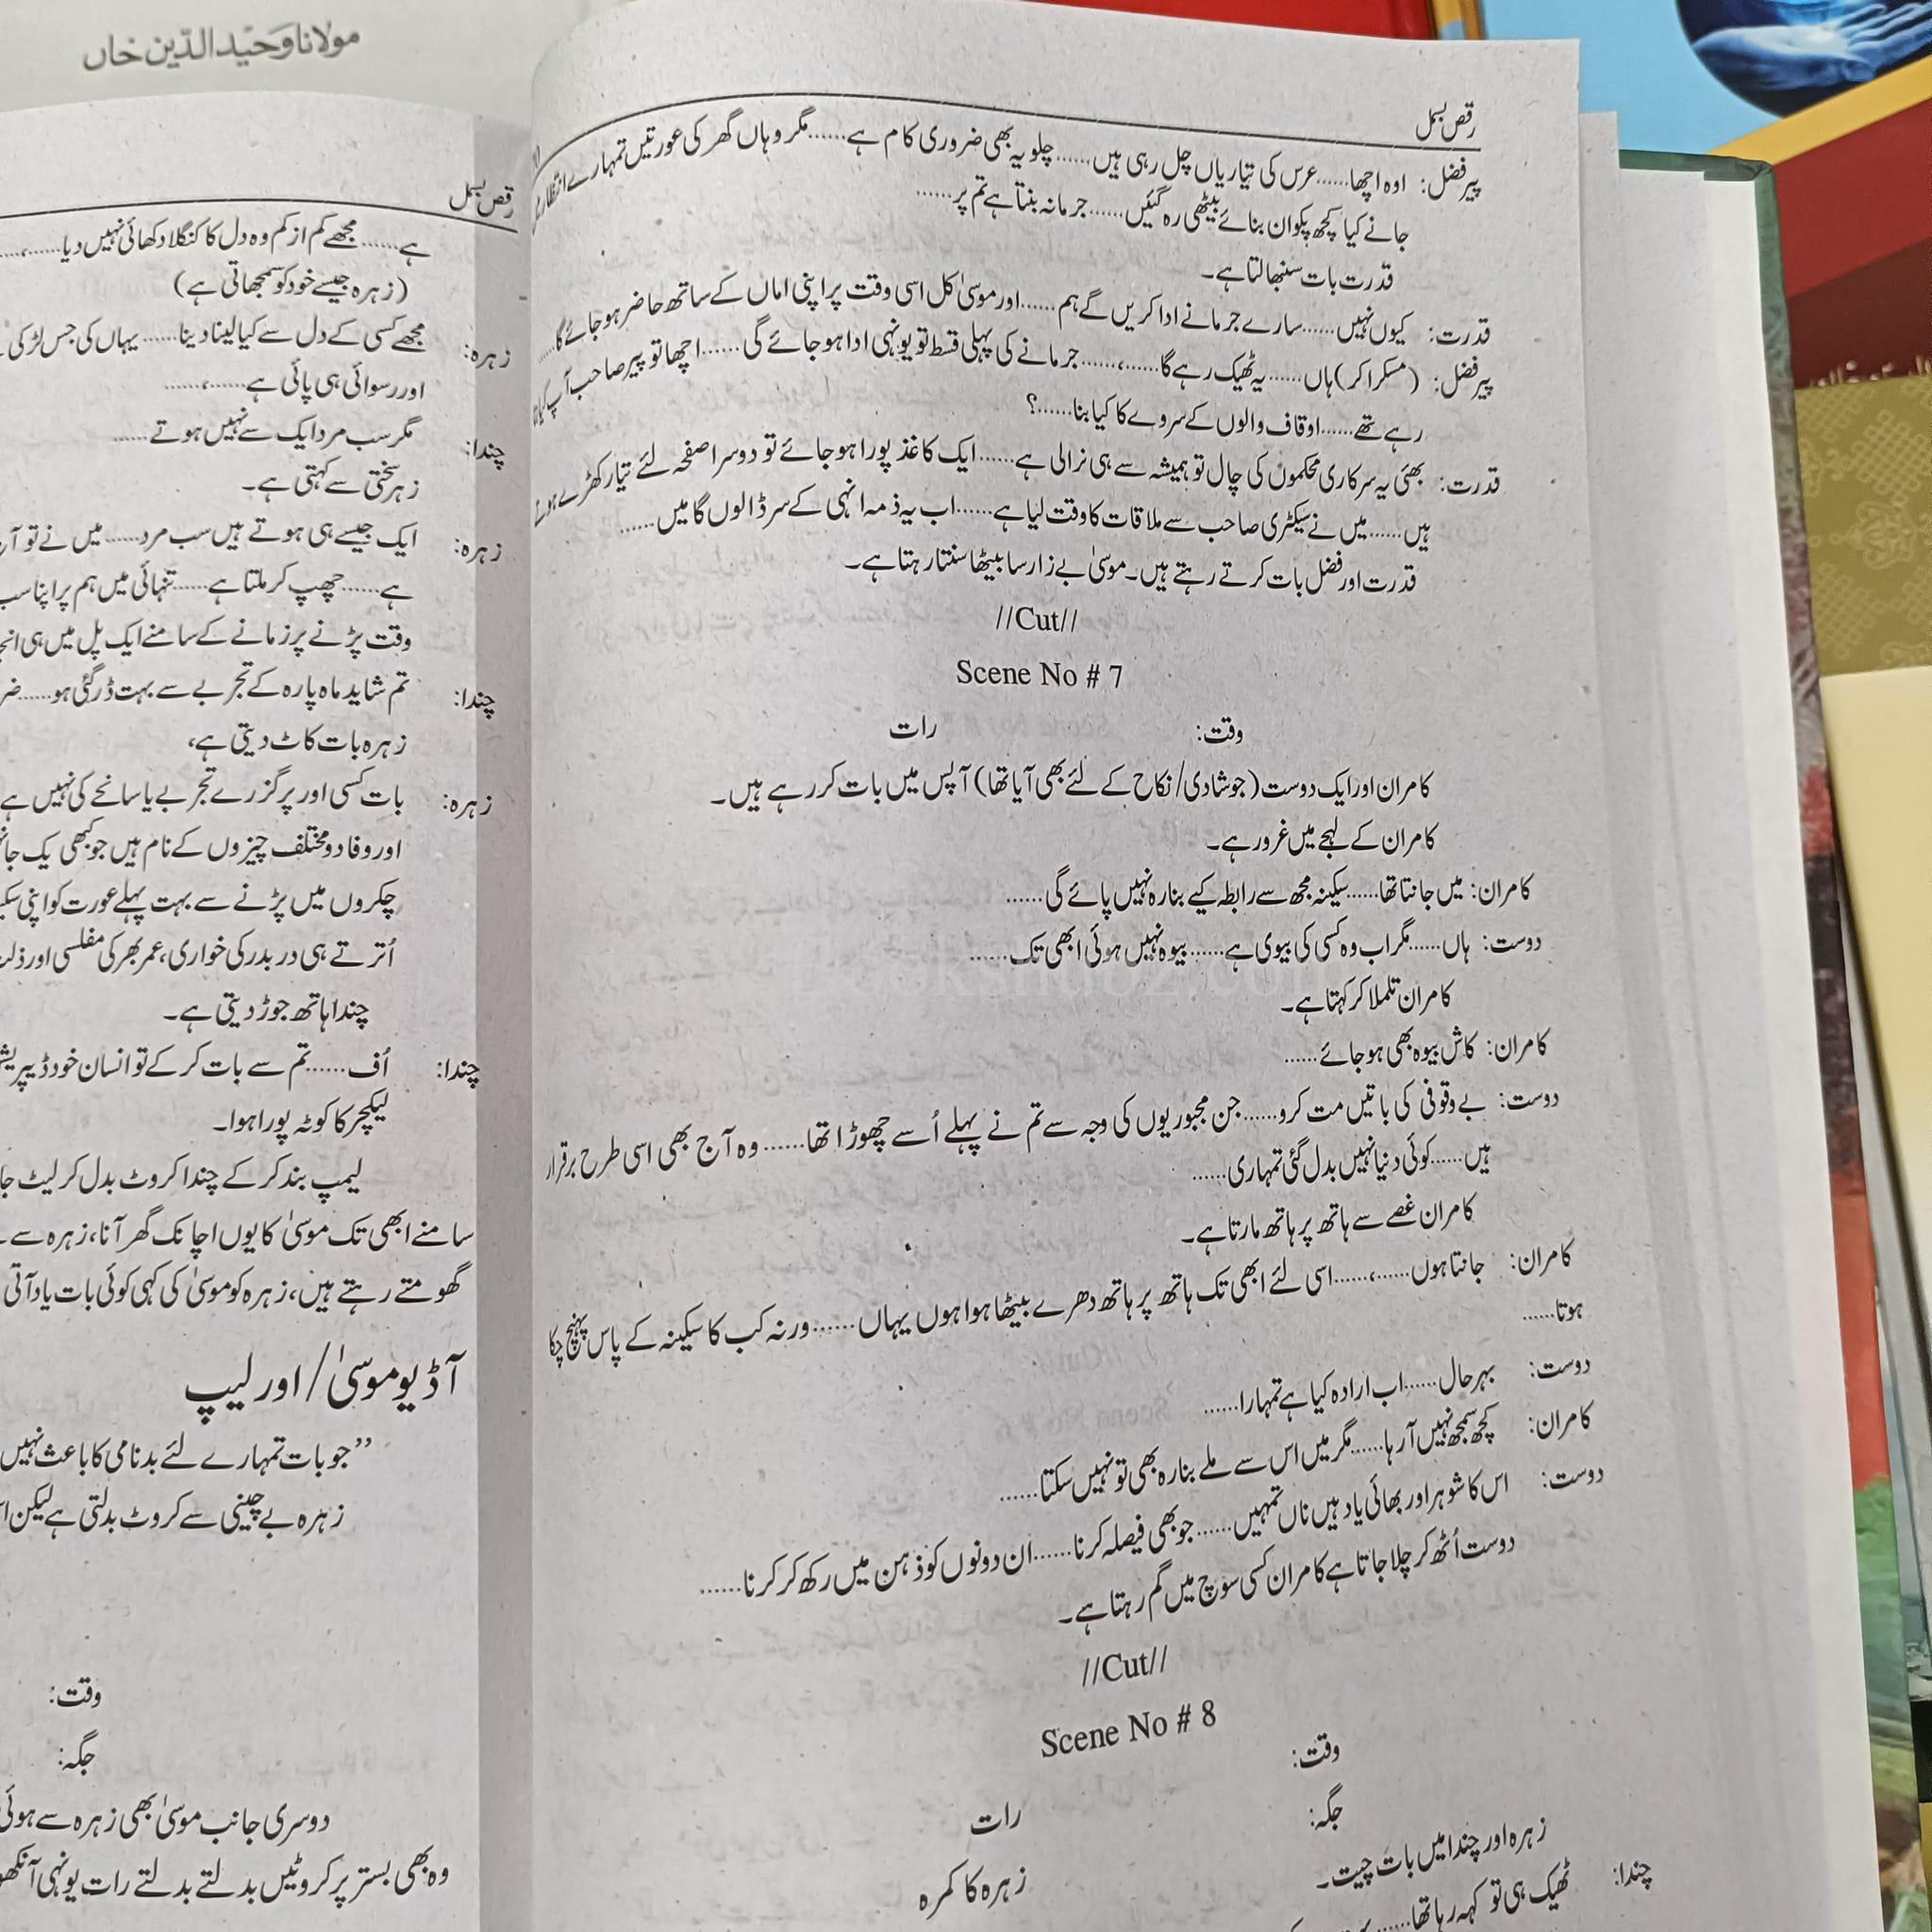 مولانا وحید الدّین خاں
رقص بسمل
پیر فضل: اوہ اچھا......عرس کی تیاریاں چل رہی ہیں......چلو یہ بھی ضروری کام ہے......مگر وہاں گھر کی عورتیں تمہارے انتظار
جانے کیا کچھ پکوان بنائے بیٹھی رہ گئیں......جرمانہ بنتا ہے تم پر......
قدرت بات سنبھالتا ہے۔
قدرت: کیوں نہیں......سارے جرمانے ادا کریں گے ہم......اور موسیٰ کل اسی وقت پر اپنی اماں کے ساتھ حاضر ہو جائے گا......
پیر فضل: (مسکرا کر) ہاں......یہ ٹھیک رہے گا......،......جرمانے کی پہلی قسط تو یونہی ادا ہو جائے گی......اچھا تو پیر صاحب آپ
رہے تھے......اوقاف والوں کے سروے کا کیا بنا......؟
قدرت: بھئی یہ سرکاری محکموں کی چال تو ہمیشہ سے ہی نرالی ہے......ایک کاغذ پورا ہو جائے تو دوسرا صفحہ لئے تیار کھڑے ہوتے
ہیں......میں نے سیکٹری صاحب سے ملاقات کا وقت لیا ہے......اب یہ ذمہ انہی کے سر ڈالوں گا میں......
قدرت اور فضل بات کرتے رہتے ہیں۔ موسیٰ بے زار سا بیٹھا سنتا رہتا ہے۔
//Cut//
Scene No # 7
وقت: رات
کامران اور ایک دوست (جو شادی/نکاح کے لئے بھی آیا تھا) آپس میں بات کر رہے ہیں۔
کامران کے لہجے میں غرور ہے۔
کامران: میں جانتا تھا......سکینہ مجھ سے رابطہ کیے بنا رہ نہیں پائے گی......
دوست: ہاں......مگر اب وہ کسی کی بیوی ہے......بیوہ نہیں ہوئی ابھی تک......
کامران تلملا کر کہتا ہے۔
کامران: کاش بیوہ بھی ہو جائے......
دوست: بے وقوفی کی باتیں مت کرو......جن مجبوریوں کی وجہ سے تم نے پہلے اُسے چھوڑا تھا......وہ آج بھی اسی طرح برقرار
ہیں......کوئی دنیا نہیں بدل گئی تمہاری......
کامران غصے سے ہاتھ پر ہاتھ مارتا ہے۔
کامران: جانتا ہوں......،......اسی لئے ابھی تک ہاتھ پر ہاتھ دھرے بیٹھا ہوا ہوں یہاں......ورنہ کب کا سکینہ کے پاس پہنچ چکا
ہوتا......
دوست: بہرحال......اب ارادہ کیا ہے تمہارا......
کامران: کچھ سمجھ نہیں آ رہا......مگر میں اس سے ملے بنا رہ بھی تو نہیں سکتا......
دوست: اس کا شوہر اور بھائی یاد ہیں ناں تمہیں......جو بھی فیصلہ کرنا......ان دونوں کو ذہن میں رکھ کر کرنا......
دوست اُٹھ کر چلا جاتا ہے کامران کسی سوچ میں گم رہتا ہے۔
//Cut//
Scene No # 8
وقت: رات
جگہ: زہرہ کا کمرہ
زہرہ اور چندا میں بات چیت۔
چندا: ٹھیک ہی تو کہہ رہا تھا......
رقص بسمل
ہے......مجھے کم از کم وہ دل کا کنگلا دکھائی نہیں دیا......،......
(زہرہ جیسے خود کو سمجھاتی ہے)
زہرہ: مجھے کسی کے دل سے کیا لینا دینا......یہاں کی جس لڑکی
اور رسوائی ہی پائی ہے......،......
چندا: مگر سب مرد ایک سے نہیں ہوتے......
زہر سختی سے کہتی ہے۔
زہرہ: ایک جیسے ہی ہوتے ہیں سب مرد......میں نے تو
ہے......چھپ کر ملتا ہے......تنہائی میں ہم پر اپنا سب
وقت پڑنے پر زمانے کے سامنے ایک پل میں ہی
چندا: تم شاید ماہ پارہ کے تجربے سے بہت ڈر گئی ہو......
زہرہ بات کاٹ دیتی ہے،
زہرہ: بات کسی اور پر گزرے تجربے یا سانحے کی نہیں ہے
اور وفا دو مختلف چیزوں کے نام ہیں جو کبھی یک
چکروں میں پڑنے سے بہت پہلے عورت کو اپنی
اُترتے ہی در بدر کی خواری، عمر بھر کی مفلسی اور
چندا ہاتھ جوڑ دیتی ہے۔
چندا: اُف......تم سے بات کر کے تو انسان خود
لیکچر کا کوٹہ پورا ہوا۔
لیمپ بند کر کے چندا کروٹ بدل کر لیٹ
سامنے ابھی تک موسیٰ کا یوں اچانک گھر آنا، زہرہ سے
گھومتے رہتے ہیں، زہرہ کو موسیٰ کی کہی کوئی بات یاد آتی
آڈیو موسیٰ/اور لیپ
”جو بات تمہارے لئے بدنامی کا باعث نہیں
زہرہ بے چینی سے کروٹ بدلتی ہے لیکن
وقت:
جگہ:
دوسری جانب موسیٰ بھی زہرہ سے ہوئی
وہ بھی بستر پر کروٹیں بدلتے بدلتے رات یونہی